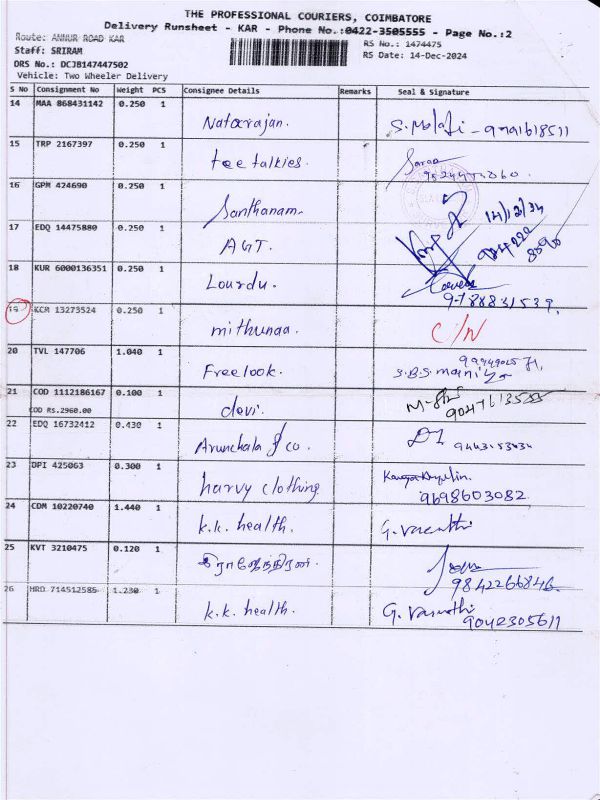 THE PROFESSIONAL COURIERS, COIMBATORE
Delivery Runsheet - KAR - Phone No.:0422-3505555 - Page No.:2
Route: ANNUR ROAD KAR
RS No.: 1474475
Staff: SRIRAM
RS Date: 14-Dec-2024
DRS No.: DCJB147447502
Vehicle: Two Wheeler Delivery
S No Consignment No Weight PCS Consignee Details Remarks Seal & Signature
14 MAA 868431142 0.250 1
Natarajan.
15 TRP 2167397 0.250 1
tee talkies.
16 GPM 424690 0.250 1
Santhanam.
14/12/24
17 EDQ 14475880 0.250 1
AGT.
18 KUR 6000136351 0.250 1
Lourdu.
19 KCM 13273524 0.250 1
mithunaa.
C/N
20 TVL 147706 1.040 1
Freelook.
S.B.S. mani
21 COD 1112186167 0.100 1
COD Rs.2960.00
devi.
22 EDQ 16732412 0.430 1
Arunchala & co.
23 DPI 425063 0.300 1
harvy clothing
9698603082.
24 CDM 10220740 1.440 1
k.k. health.
G. Vasanthi
25 KVT 3210475 0.120 1
9842266846.
26 HRD 714512585 1.230 1
k.k. health.
G. Vasanthi
9042305611